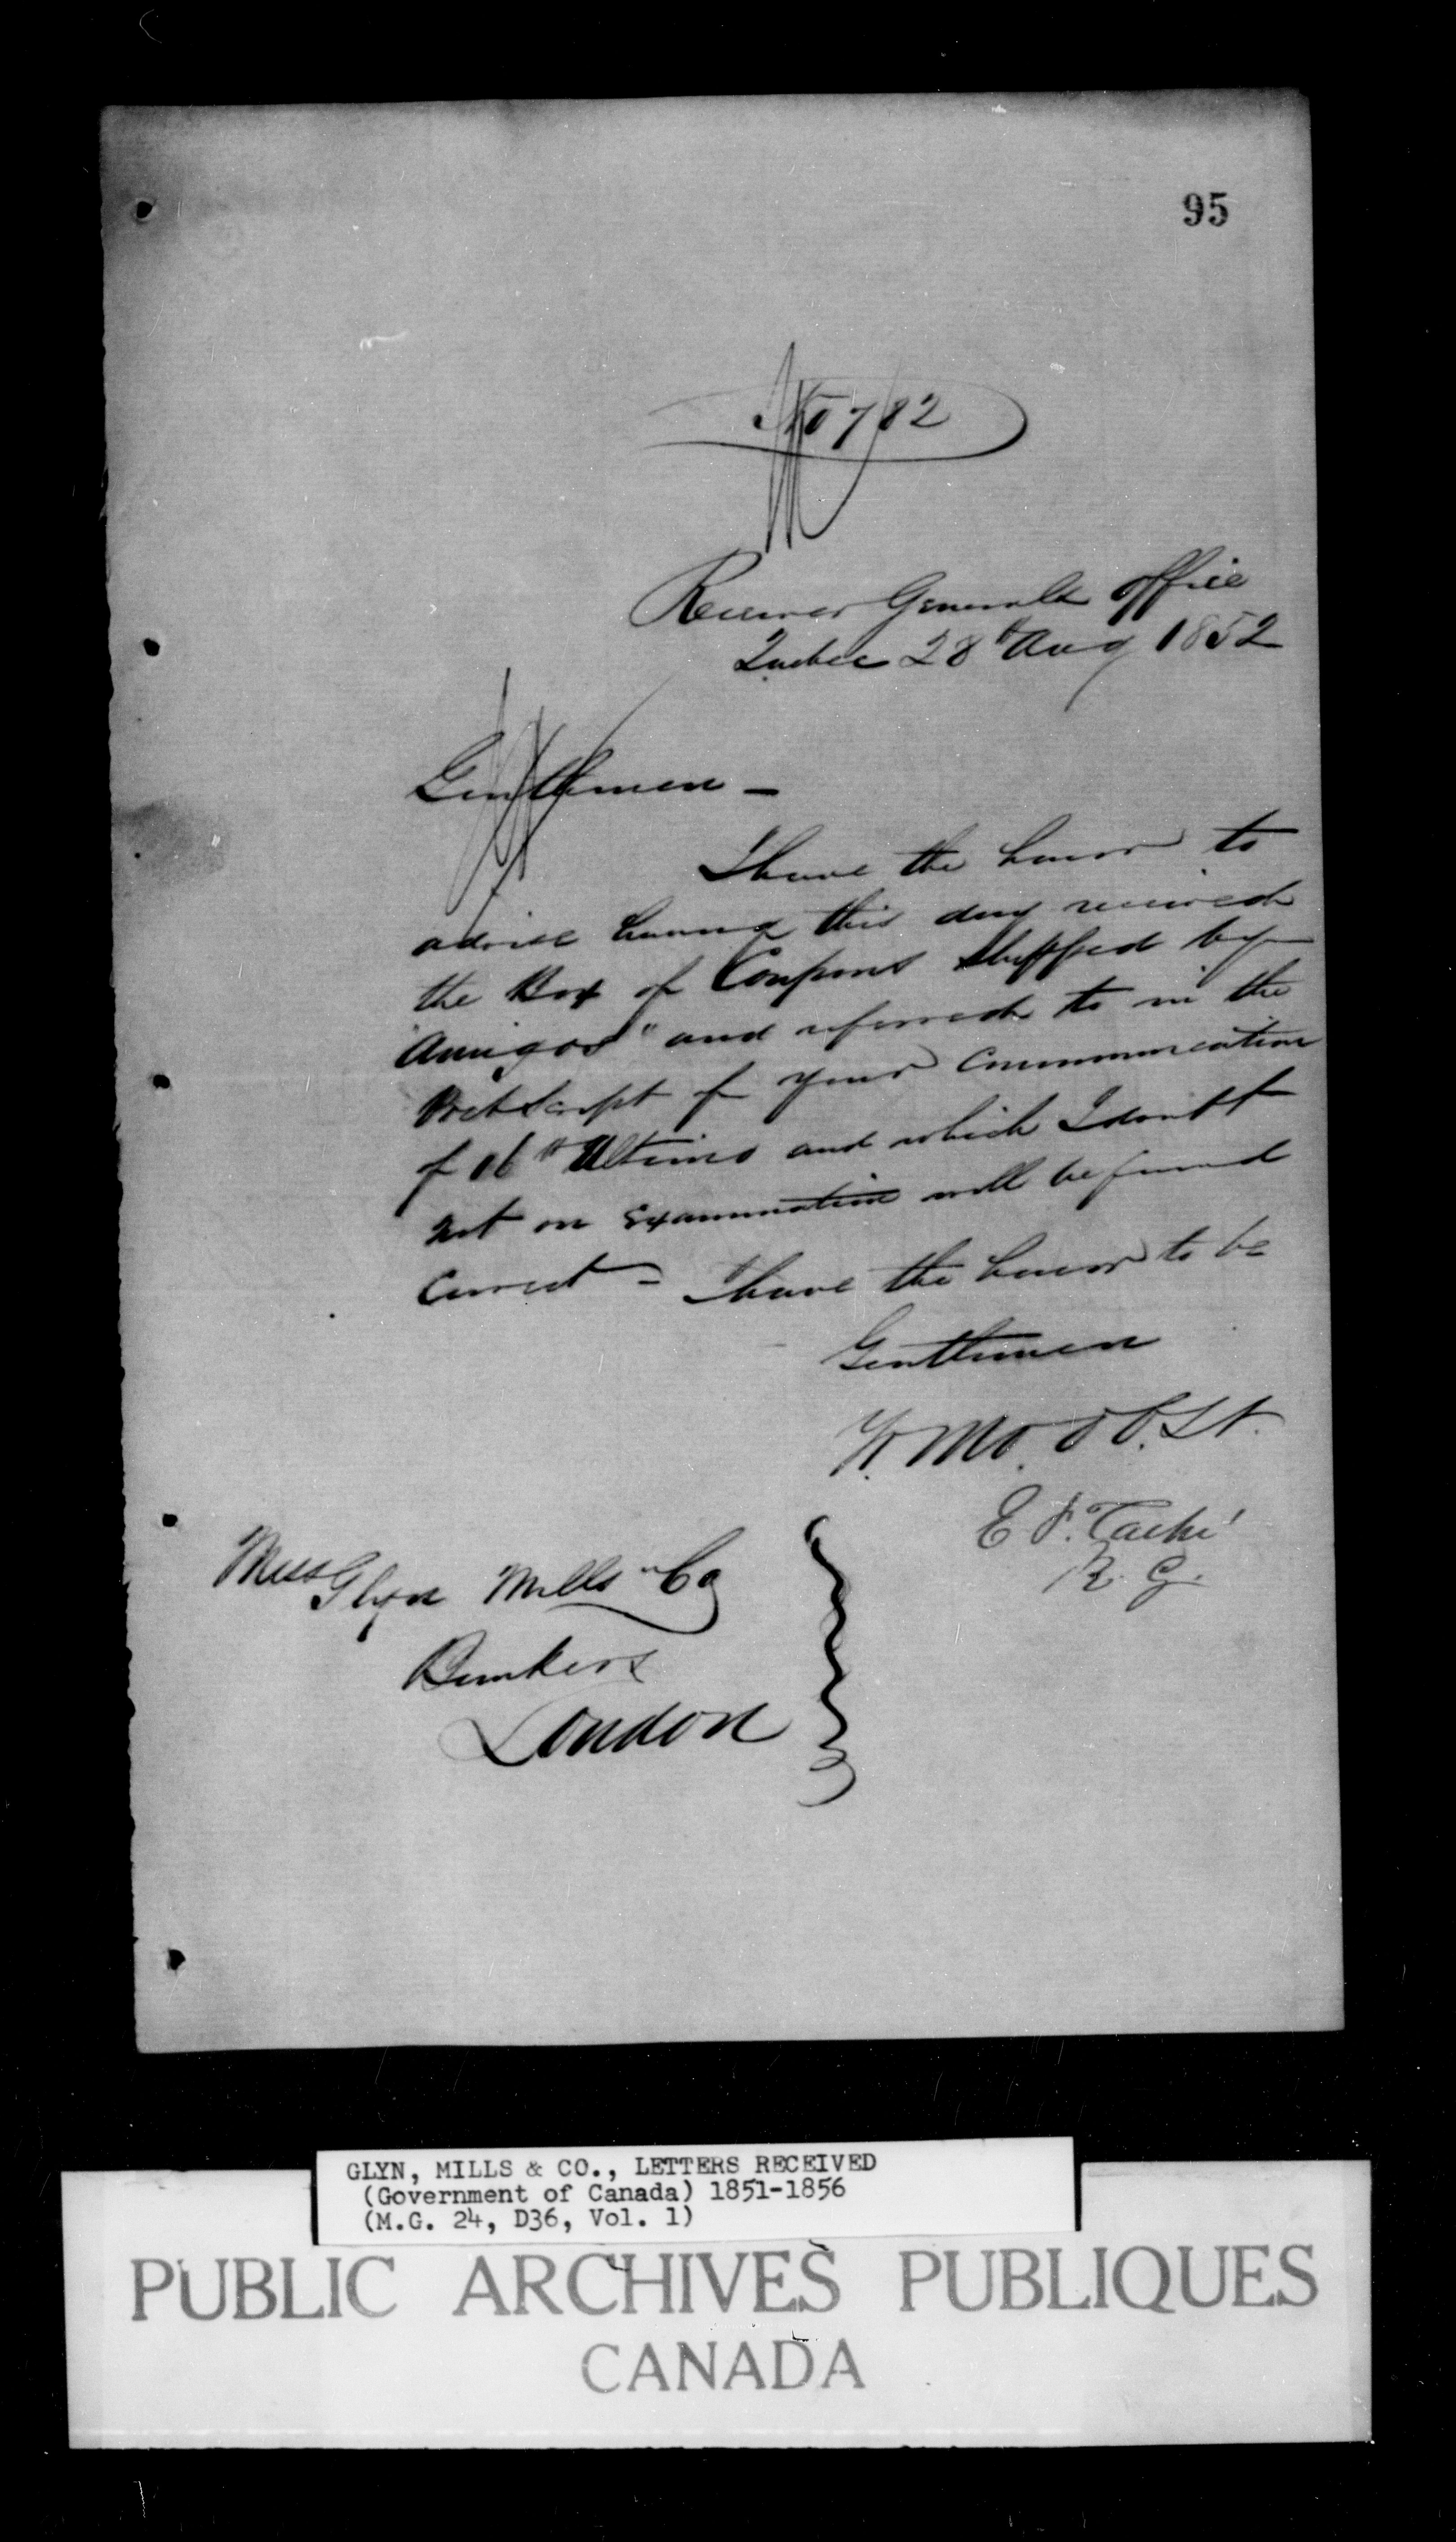 95
No 782
Receiver Generals office
Quebec 28th Aug 1852
Gentlemen -
I have the honor to
advise having this day received
the Box of Coupons Shipped by
"Amigos" and referred to in the
Postscript of your Communication
of 16th Ultimo and which I doubt
not on Examination will be found
Correct - I have the honor to be
Gentlemen
Yr. Mo. Ob. St.
E P. Taché
R. G.
Mess Glyn Mills & Co
Bankers
London
GLYN, MILLS & CO., LETTERS RECEIVED
(Government of Canada) 1851-1856
(M.G. 24, D36, Vol. 1)
PUBLIC ARCHIVES PUBLIQUES
CANADA